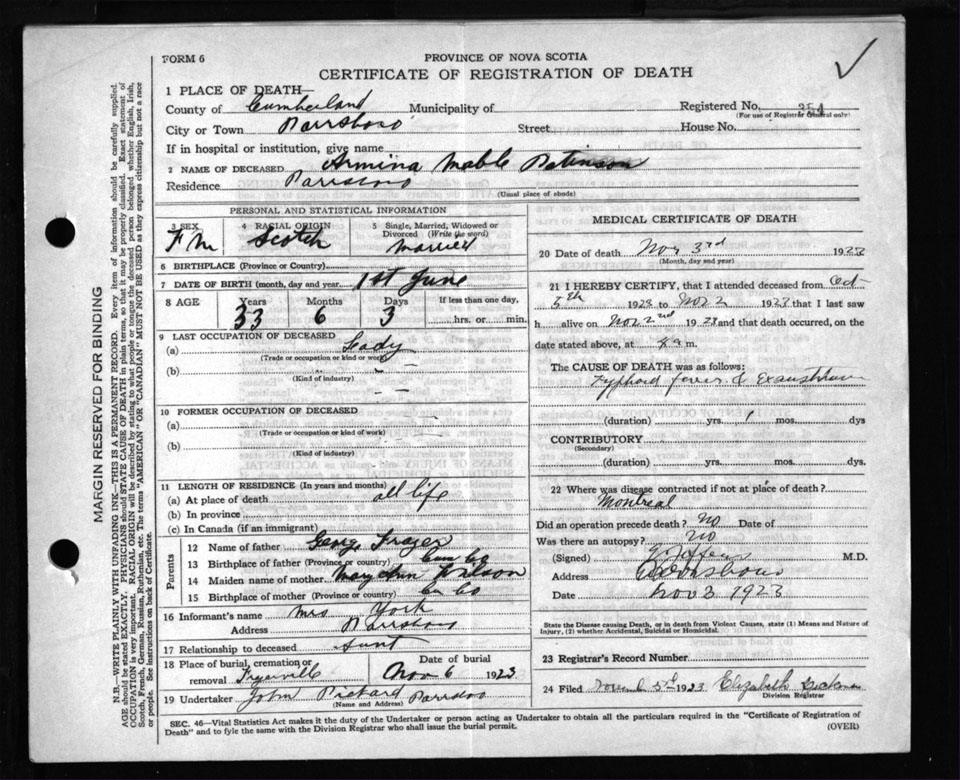 FORM 6
PROVINCE OF NOVA SCOTIA
CERTIFICATE OF REGISTRATION OF DEATH
1 PLACE OF DEATH—
County of Cumberland Municipality of Registered No. 354
(For use of Registrar General only)
City or Town Parrsboro Street House No.
If in hospital or institution, give name
2 NAME OF DECEASED Armina Mable
Residence Parrsboro
(Usual place of abode)
PERSONAL AND STATISTICAL INFORMATION
3 SEX 4 RACIAL ORIGIN 5 Single, Married, Widowed or
Divorced (Write the word)
F M Scotch Married
6 BIRTHPLACE (Province or Country)
7 DATE OF BIRTH (month, day and year) 1st June
8 AGE Years Months Days If less than one day,
33 6 3 hrs. or min.
9 LAST OCCUPATION OF DECEASED
(a) Lady
(Trade or occupation or kind or work)
(b)
(Kind of industry)
10 FORMER OCCUPATION OF DECEASED
(a)
(Trade or occupation or kind of work)
(b)
(Kind of industry)
11 LENGTH OF RESIDENCE (In years and months)
(a) At place of death all life
(b) In province
(c) In Canada (if an immigrant)
Parents
12 Name of father George Frazer
13 Birthplace of father (Province or country) Cum Co
14 Maiden name of mother Mary Ann
15 Birthplace of mother (Province or country) Cu Co
16 Informant's name Mrs York
Address Parrsboro
17 Relationship to deceased Aunt
18 Place of burial, cremation or Date of burial
removal Nov 6 1923
19 Undertaker John Pickard Parrsboro
(Name and Address)
MEDICAL CERTIFICATE OF DEATH
20 Date of death Nov 3rd 192
(Month, day and year)
21 I HEREBY CERTIFY, that I attended deceased from Oct
5th 192 to Nov 2 192 that I last saw
h alive on Nov 2nd 192 and that death occurred, on the
date stated above, at m.
The CAUSE OF DEATH was as follows:
Typhoid fever & Exaustion
(duration) yrs. 1 mos. dys
CONTRIBUTORY
(Secondary)
(duration) yrs. mos. dys.
22 Where was disease contracted if not at place of death?
Montreal
Did an operation precede death? no Date of
Was there an autopsy? no
(Signed) M.D.
Address
Date Nov 3 1923
State the Disease causing Death, or in death from Violent Causes, state (1) Means and Nature of
Injury, (2) whether Accidental, Suicidal or Homicidal.
23 Registrar's Record Number
24 Filed 1923 Elizabeth
Division Registrar
SEC. 46—Vital Statistics Act makes it the duty of the Undertaker or person acting as Undertaker to obtain all the particulars required in the "Certificate of Registration of
Death" and to fyle the same with the Division Registrar who shall issue the burial permit. (OVER)
MARGIN RESERVED FOR BINDING
N.B.—WRITE PLAINLY WITH UNFADING INK—THIS IS A PERMANENT RECORD. Every item of information should be carefully supplied.
AGE should be stated EXACTLY. PHYSICIANS should STATE CAUSE OF DEATH in plain terms, so that it may be properly classified. Exact statement of
OCCUPATION is very important. RACIAL ORIGIN will be described by stating to what people or tongue the deceased person belonged whether English, Irish,
Scotch, French, German, Russian, Ruthenian, etc. The terms "AMERICAN" OR "CANADIAN" MUST NOT BE USED as they express citizenship but not a race
or people. See instructions on back of Certificate.